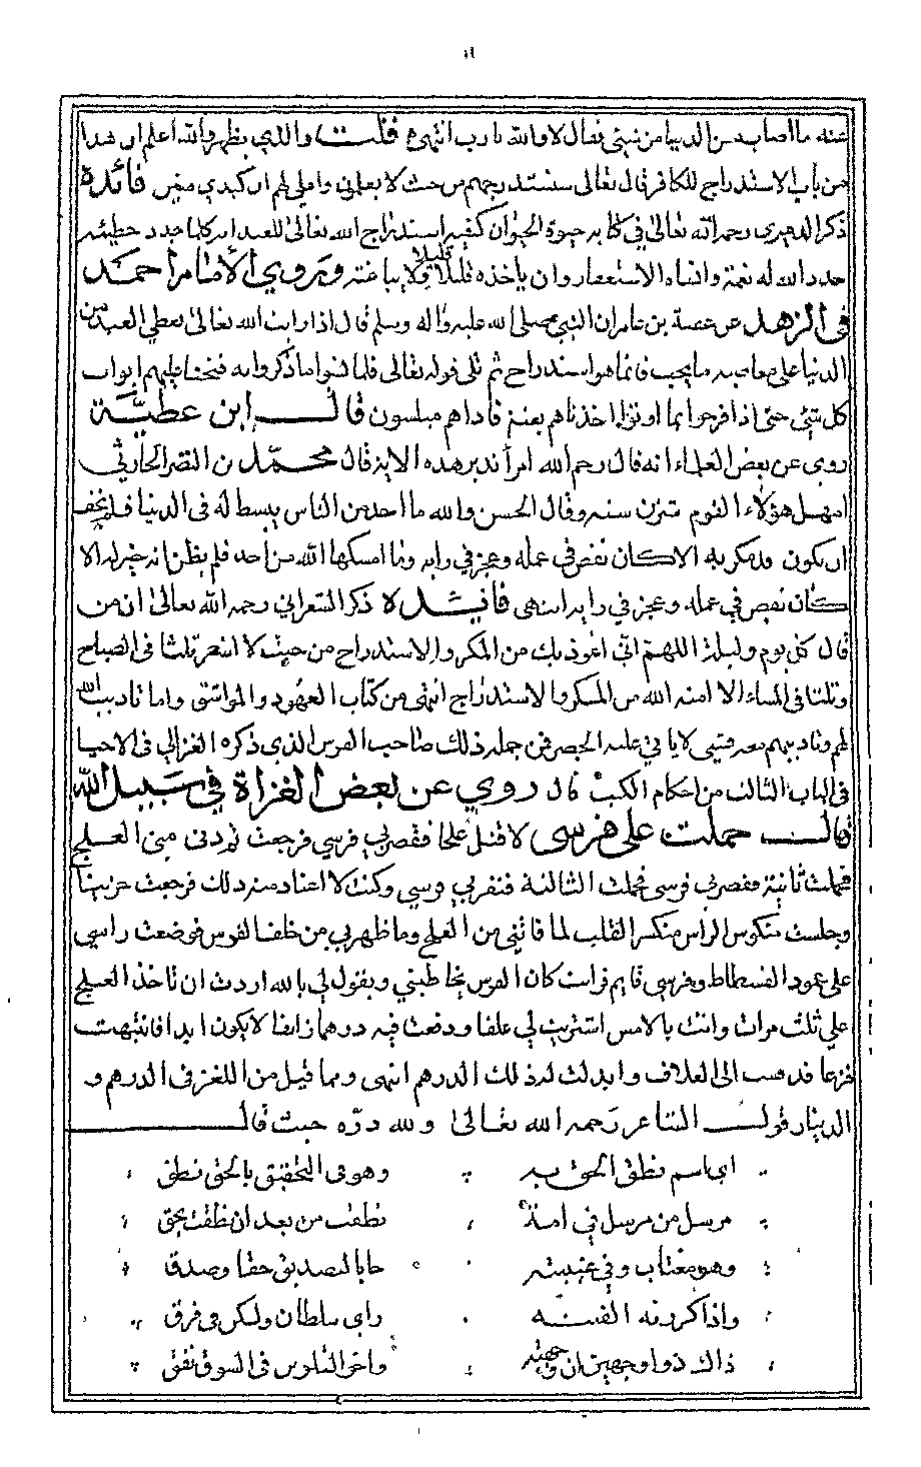 عنه ما اصابه من الدنيا من شيئ فقال لا والله يا رب انتهى قلت والذي يظهر والله اعلم ان هذا
من باب الاستدراج للكافر قال تعالى سنستدرجهم من حيث لا يعلمون واملي لهم ان كيدي متين فائدة
ذكر الدميري رحمه الله تعالى في كتابه حيوة الحيوان كيفية استدراج الله تعالى للعبد انه كلما جدد خطيئة
جدد الله له نعمة وانساه الاستغفار وان ياخذه قليلا قليلا ولا يباغته ويروي الامام احمد
في الزهد عن عقبة بن عامر ان النبي صلى الله عليه واله وسلم قال اذا رايت الله تعالى يعطي العبد من
الدنيا على معاصيه ما يحب فانما هو استدراج ثم تلى قوله تعالى فلما نسوا ما ذكروا به فتحنا عليهم ابواب
كل شيئ حتى اذا فرحوا بما اوتوا اخذناهم بغتة فاذا هم مبلسون قال ابن عطية
روي عن بعض العلماء انه قال رحم الله امرأ تدبر هذه الاية قال محمد بن النضر الحارثي
امهل هؤلاء القوم سنة وقال الحسن والله ما احد من الناس يبسط له في الدنيا فلم يخف
ان يكون قد مكر به الا كان نقص في عمله وعجز في رايه وما امسكها الله من احد فلم يظن انه خير له الا
كان نقص في عمله وعجز في رايه انتهى فائدة ذكر الشعراني رحمه الله تعالى ان من
قال كل يوم وليلة اللهم اني اعوذ بك من المكر والاستدراج من حيث لا اشعر ثلثا في الصباح
وثلثا في المساء الا امنه الله من المكر والاستدراج انتهى من كتاب العهود والمواثيق واما تاديب الله
لهم وتاديبهم لايا تي عليه الحصر فمن جملة ذلك صاحب الفرس الذي ذكره الغزالي في الاحيا
في الباب الثالث من احكام الكسب قال روي عن بعض الغزاة في سبيل الله
قال حملت على فرسي لاقتل علجا فقصر بي فرسي فرجعت ثم دنى مني العلج
فحملت ثانية فقصر بي فرسي فحملت الثالثة فنفر بي فرسي وكنت لا اعتاد منه ذلك فرجعت حزينا
وجلست منكوس الراس منكسر القلب لما فاتني من العلج وما ظهر بي من خلف الفرس فوضعت راسي
على عمود الفسطاط وفرسي قايم فرايت كان الفرس يخاطبني ويقول لي بالله اردت ان تاخذ العلج
علي ثلث مرات وانت بالامس اشتريت لي علفا ودفعت فيه درهما زايفا لا يكون ابدا فانتبهت
فزعا فذهبت الى العلاف وابدلت له ذلك الدرهم انتهى ومما قيل من اللغز في الدرهم و
الدينار قول الشاعر رحمه الله تعالى ولله دره حيث قال
اي اسم نطق الحق به وهو في التحقيق بالحق نطق
مرسل من مرسل في امة نطقت من بعد ان نطقت بحق
وهو مغتاب وفي غيبته جا بالتصديق حقا وصدق
واذا كر به الفتنة راي سلطان ولكن في فرق
ذاك ذو وجهين ان وجهته واخو الثلوس في السوق نفق